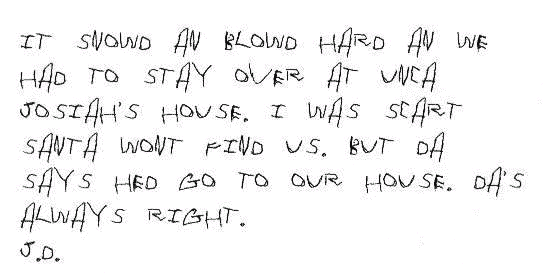 IT SNOWD AN BLOWD HARD AN WE
HAD TO STAY OVER AT UNCA
JOSIAH'S HOUSE. I WAS SCART
SANTA WONT FIND US. BUT DA
SAYS HED GO TO OUR HOUSE. DA'S
ALWAYS RIGHT.
J.D.